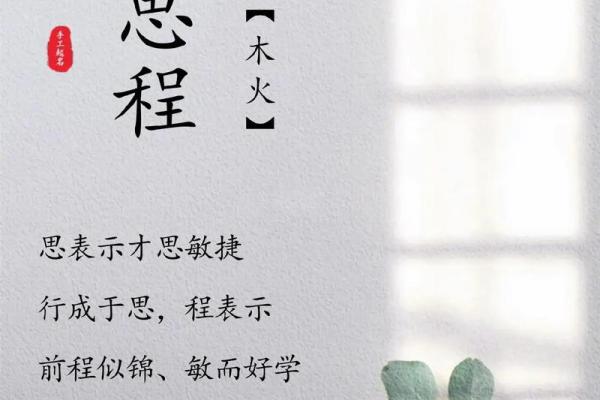 思程
【木火】
手工起名
思表示才思敏捷
行成于思，程表示
前程似锦、敏而好学